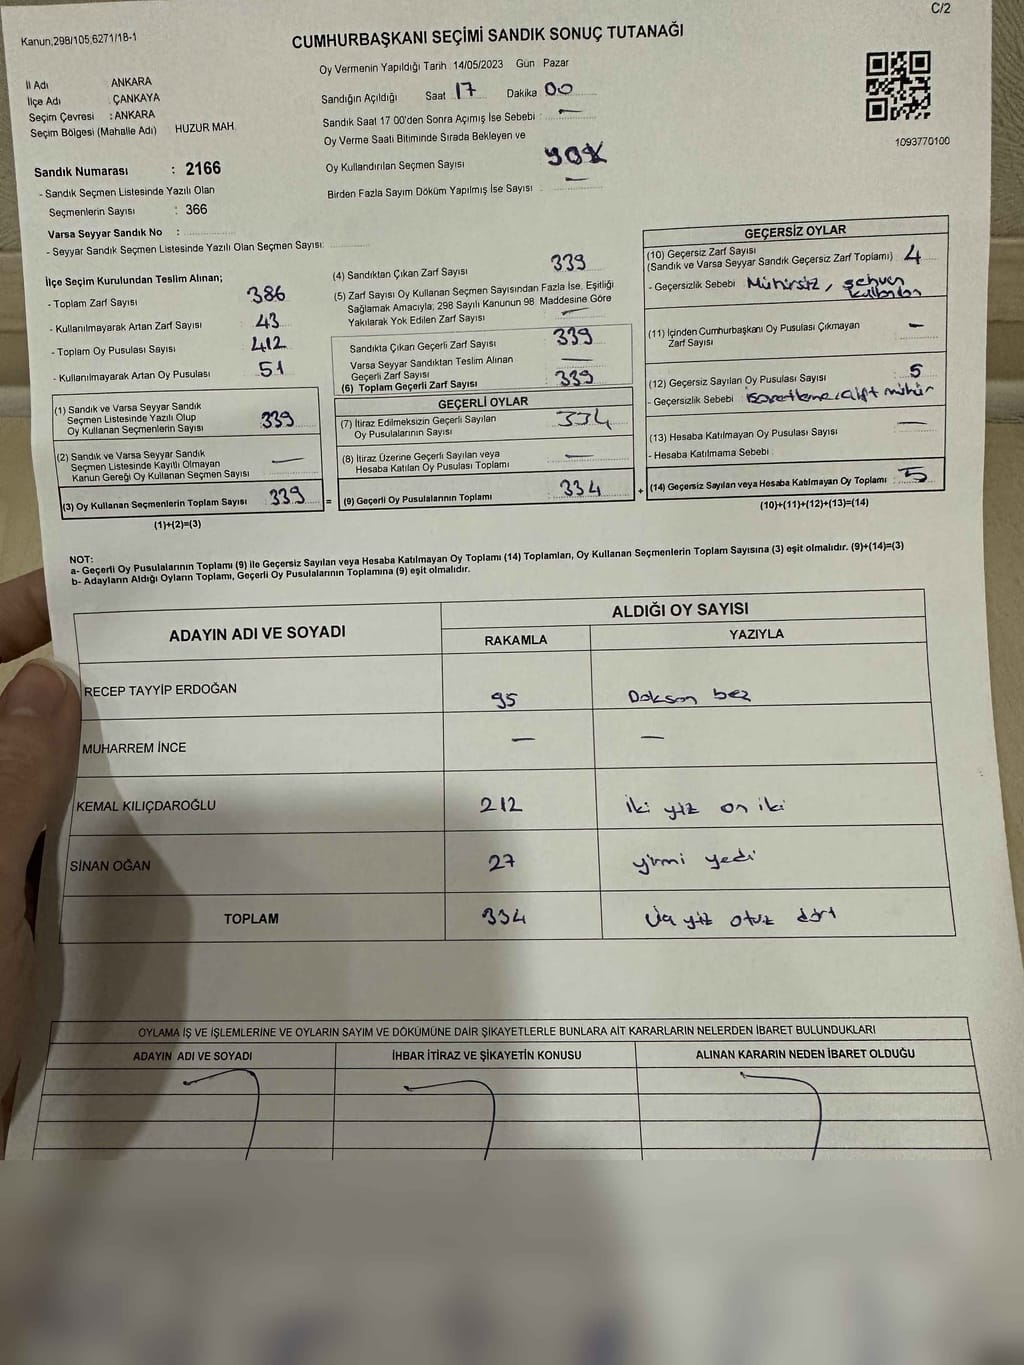 C/2
Kanun,298/105,6271/18-1
CUMHURBAŞKANI SEÇİMİ SANDIK SONUÇ TUTANAĞI
İl Adı : ANKARA
İlçe Adı : ÇANKAYA
Seçim Çevresi : ANKARA
Seçim Bölgesi (Mahalle Adı) HUZUR MAH.
Sandık Numarası : 2166
- Sandık Seçmen Listesinde Yazılı Olan
Seçmenlerin Sayısı : 366
Varsa Seyyar Sandık No :
- Seyyar Sandık Seçmen Listesinde Yazılı Olan Seçmen Sayısı:
Oy Vermenin Yapıldığı Tarih 14/05/2023 Gün Pazar
Sandığın Açıldığı Saat 17 Dakika 00
Sandık Saat 17 00'den Sonra Açımış İse Sebebi : —
Oy Verme Saati Bitiminde Sırada Bekleyen ve
Oy Kullandırılan Seçmen Sayısı
Birden Fazla Sayım Döküm Yapılmış İse Sayısı : —
1093770100
İlçe Seçim Kurulundan Teslim Alınan;
- Toplam Zarf Sayısı 386
- Kullanılmayarak Artan Zarf Sayısı 43
- Toplam Oy Pusulası Sayısı 412
- Kullanılmayarak Artan Oy Pusulası 51
(1) Sandık ve Varsa Seyyar Sandık
Seçmen Listesinde Yazılı Olup
Oy Kullanan Seçmenlerin Sayısı 339
(2) Sandık ve Varsa Seyyar Sandık
Seçmen Listesinde Kayıtlı Olmayan
Kanun Gereği Oy Kullanan Seçmen Sayısı —
(3) Oy Kullanan Seçmenlerin Toplam Sayısı 339 =
(1)+(2)=(3)
(4) Sandıktan Çıkan Zarf Sayısı 339
(5) Zarf Sayısı Oy Kullanan Seçmen Sayısından Fazla İse, Eşitliği
Sağlamak Amacıyla, 298 Sayılı Kanunun 98. Maddesine Göre
Yakılarak Yok Edilen Zarf Sayısı —
Sandıkta Çıkan Geçerli Zarf Sayısı 339
Varsa Seyyar Sandıktan Teslim Alınan
Geçerli Zarf Sayısı —
(6) Toplam Geçerli Zarf Sayısı 339
GEÇERLİ OYLAR
(7) İtiraz Edilmeksizin Geçerli Sayılan
Oy Pusulalarının Sayısı 334
(8) İtiraz Üzerine Geçerli Sayılan veya
Hesaba Katılan Oy Pusulası Toplamı —
(9) Geçerli Oy Pusulalarının Toplamı 334 +
GEÇERSİZ OYLAR
(10) Geçersiz Zarf Sayısı
(Sandık ve Varsa Seyyar Sandık Geçersiz Zarf Toplamı) 4
- Geçersizlik Sebebi Mühürsüz, sehven
(11) İçinden Cumhurbaşkanı Oy Pusulası Çıkmayan
Zarf Sayısı —
(12) Geçersiz Sayılan Oy Pusulası Sayısı 5
- Geçersizlik Sebebi çift mühür
(13) Hesaba Katılmayan Oy Pusulası Sayısı —
- Hesaba Katılmama Sebebi :
(14) Geçersiz Sayılan veya Hesaba Katılmayan Oy Toplamı 5
(10)+(11)+(12)+(13)=(14)
NOT:
a- Geçerli Oy Pusulalarının Toplamı (9) ile Geçersiz Sayılan veya Hesaba Katılmayan Oy Toplamı (14) Toplamları, Oy Kullanan Seçmenlerin Toplam Sayısına (3) eşit olmalıdır. (9)+(14)=(3)
b- Adayların Aldığı Oyların Toplamı, Geçerli Oy Pusulalarının Toplamına (9) eşit olmalıdır.
ADAYIN ADI VE SOYADI ALDIĞI OY SAYISI
RAKAMLA YAZIYLA
RECEP TAYYİP ERDOĞAN 95 Doksan beş
MUHARREM İNCE — —
KEMAL KILIÇDAROĞLU 212 iki yüz on iki
SİNAN OĞAN 27 yirmi yedi
TOPLAM 334 Üç yüz otuz dört
OYLAMA İŞ VE İŞLEMLERİNE VE OYLARIN SAYIM VE DÖKÜMÜNE DAİR ŞİKAYETLERLE BUNLARA AİT KARARLARIN NELERDEN İBARET BULUNDUKLARI
ADAYIN ADI VE SOYADI İHBAR İTİRAZ VE ŞİKAYETİN KONUSU ALINAN KARARIN NEDEN İBARET OLDUĞU